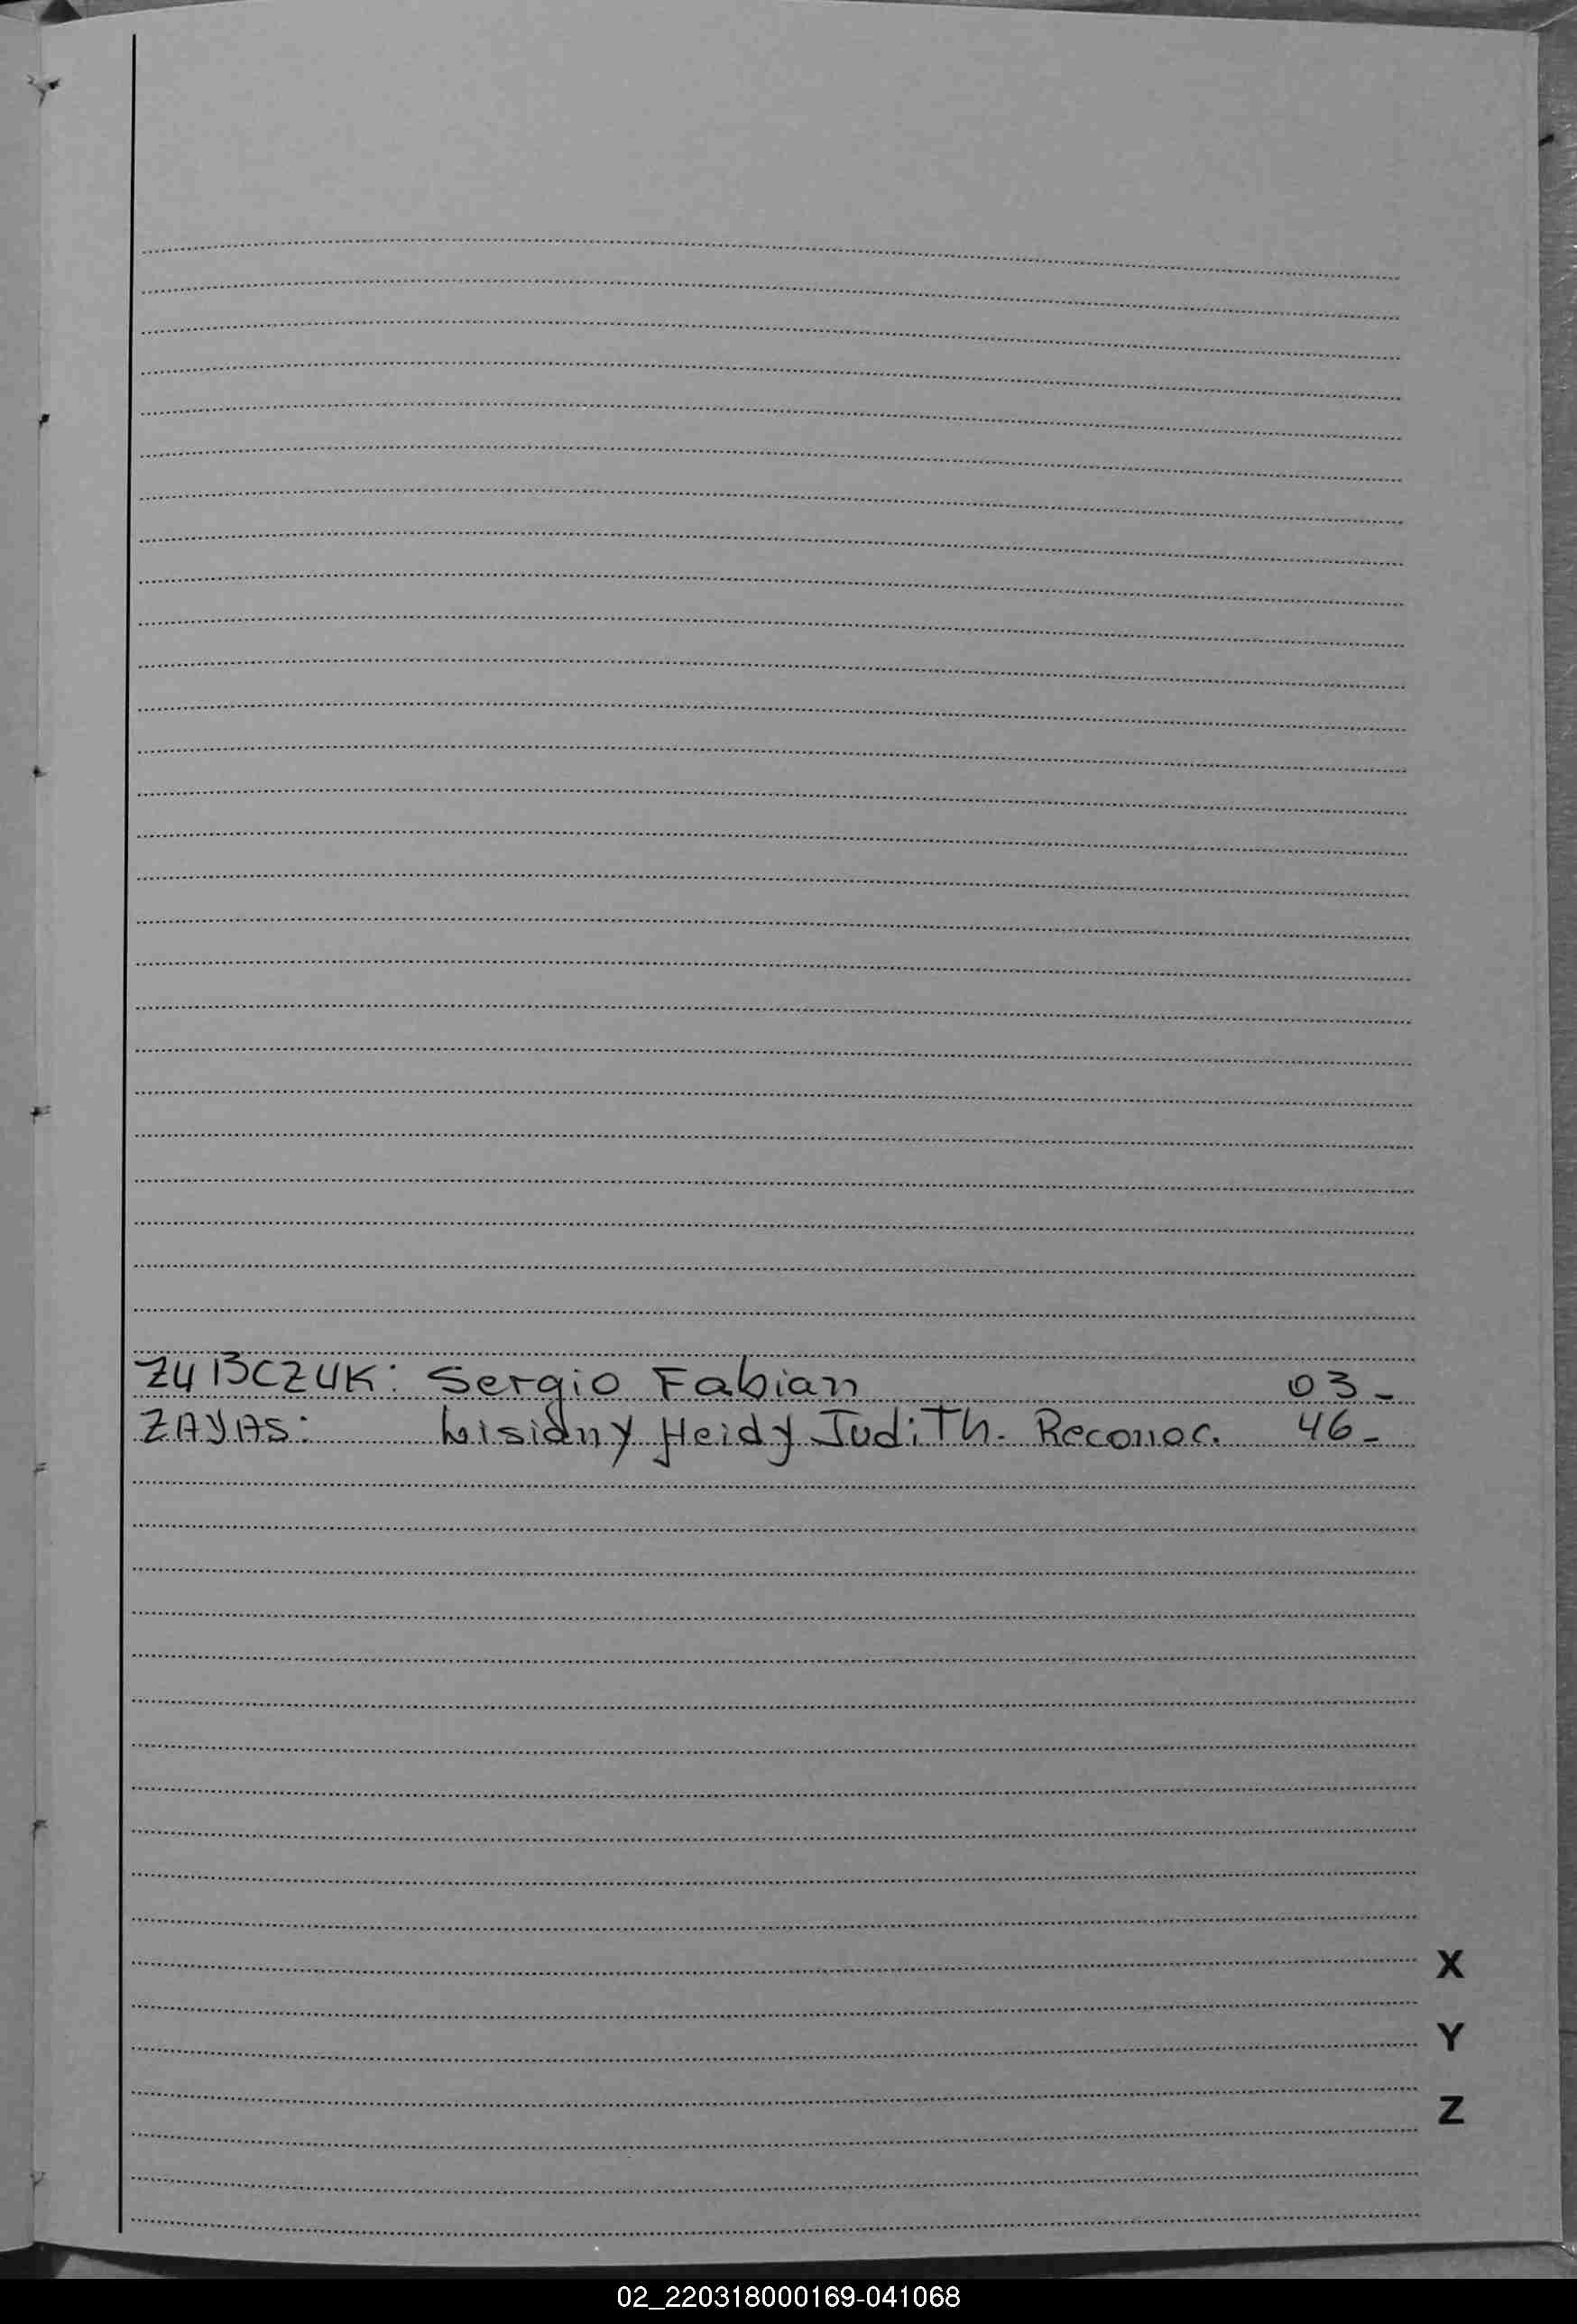 ZUBCZUK: Sergio Fabian 03-
ZAYAS: Lisiany Heidy Judith. Reconoc. 46-
X
Y
Z
02_220318000169-041068